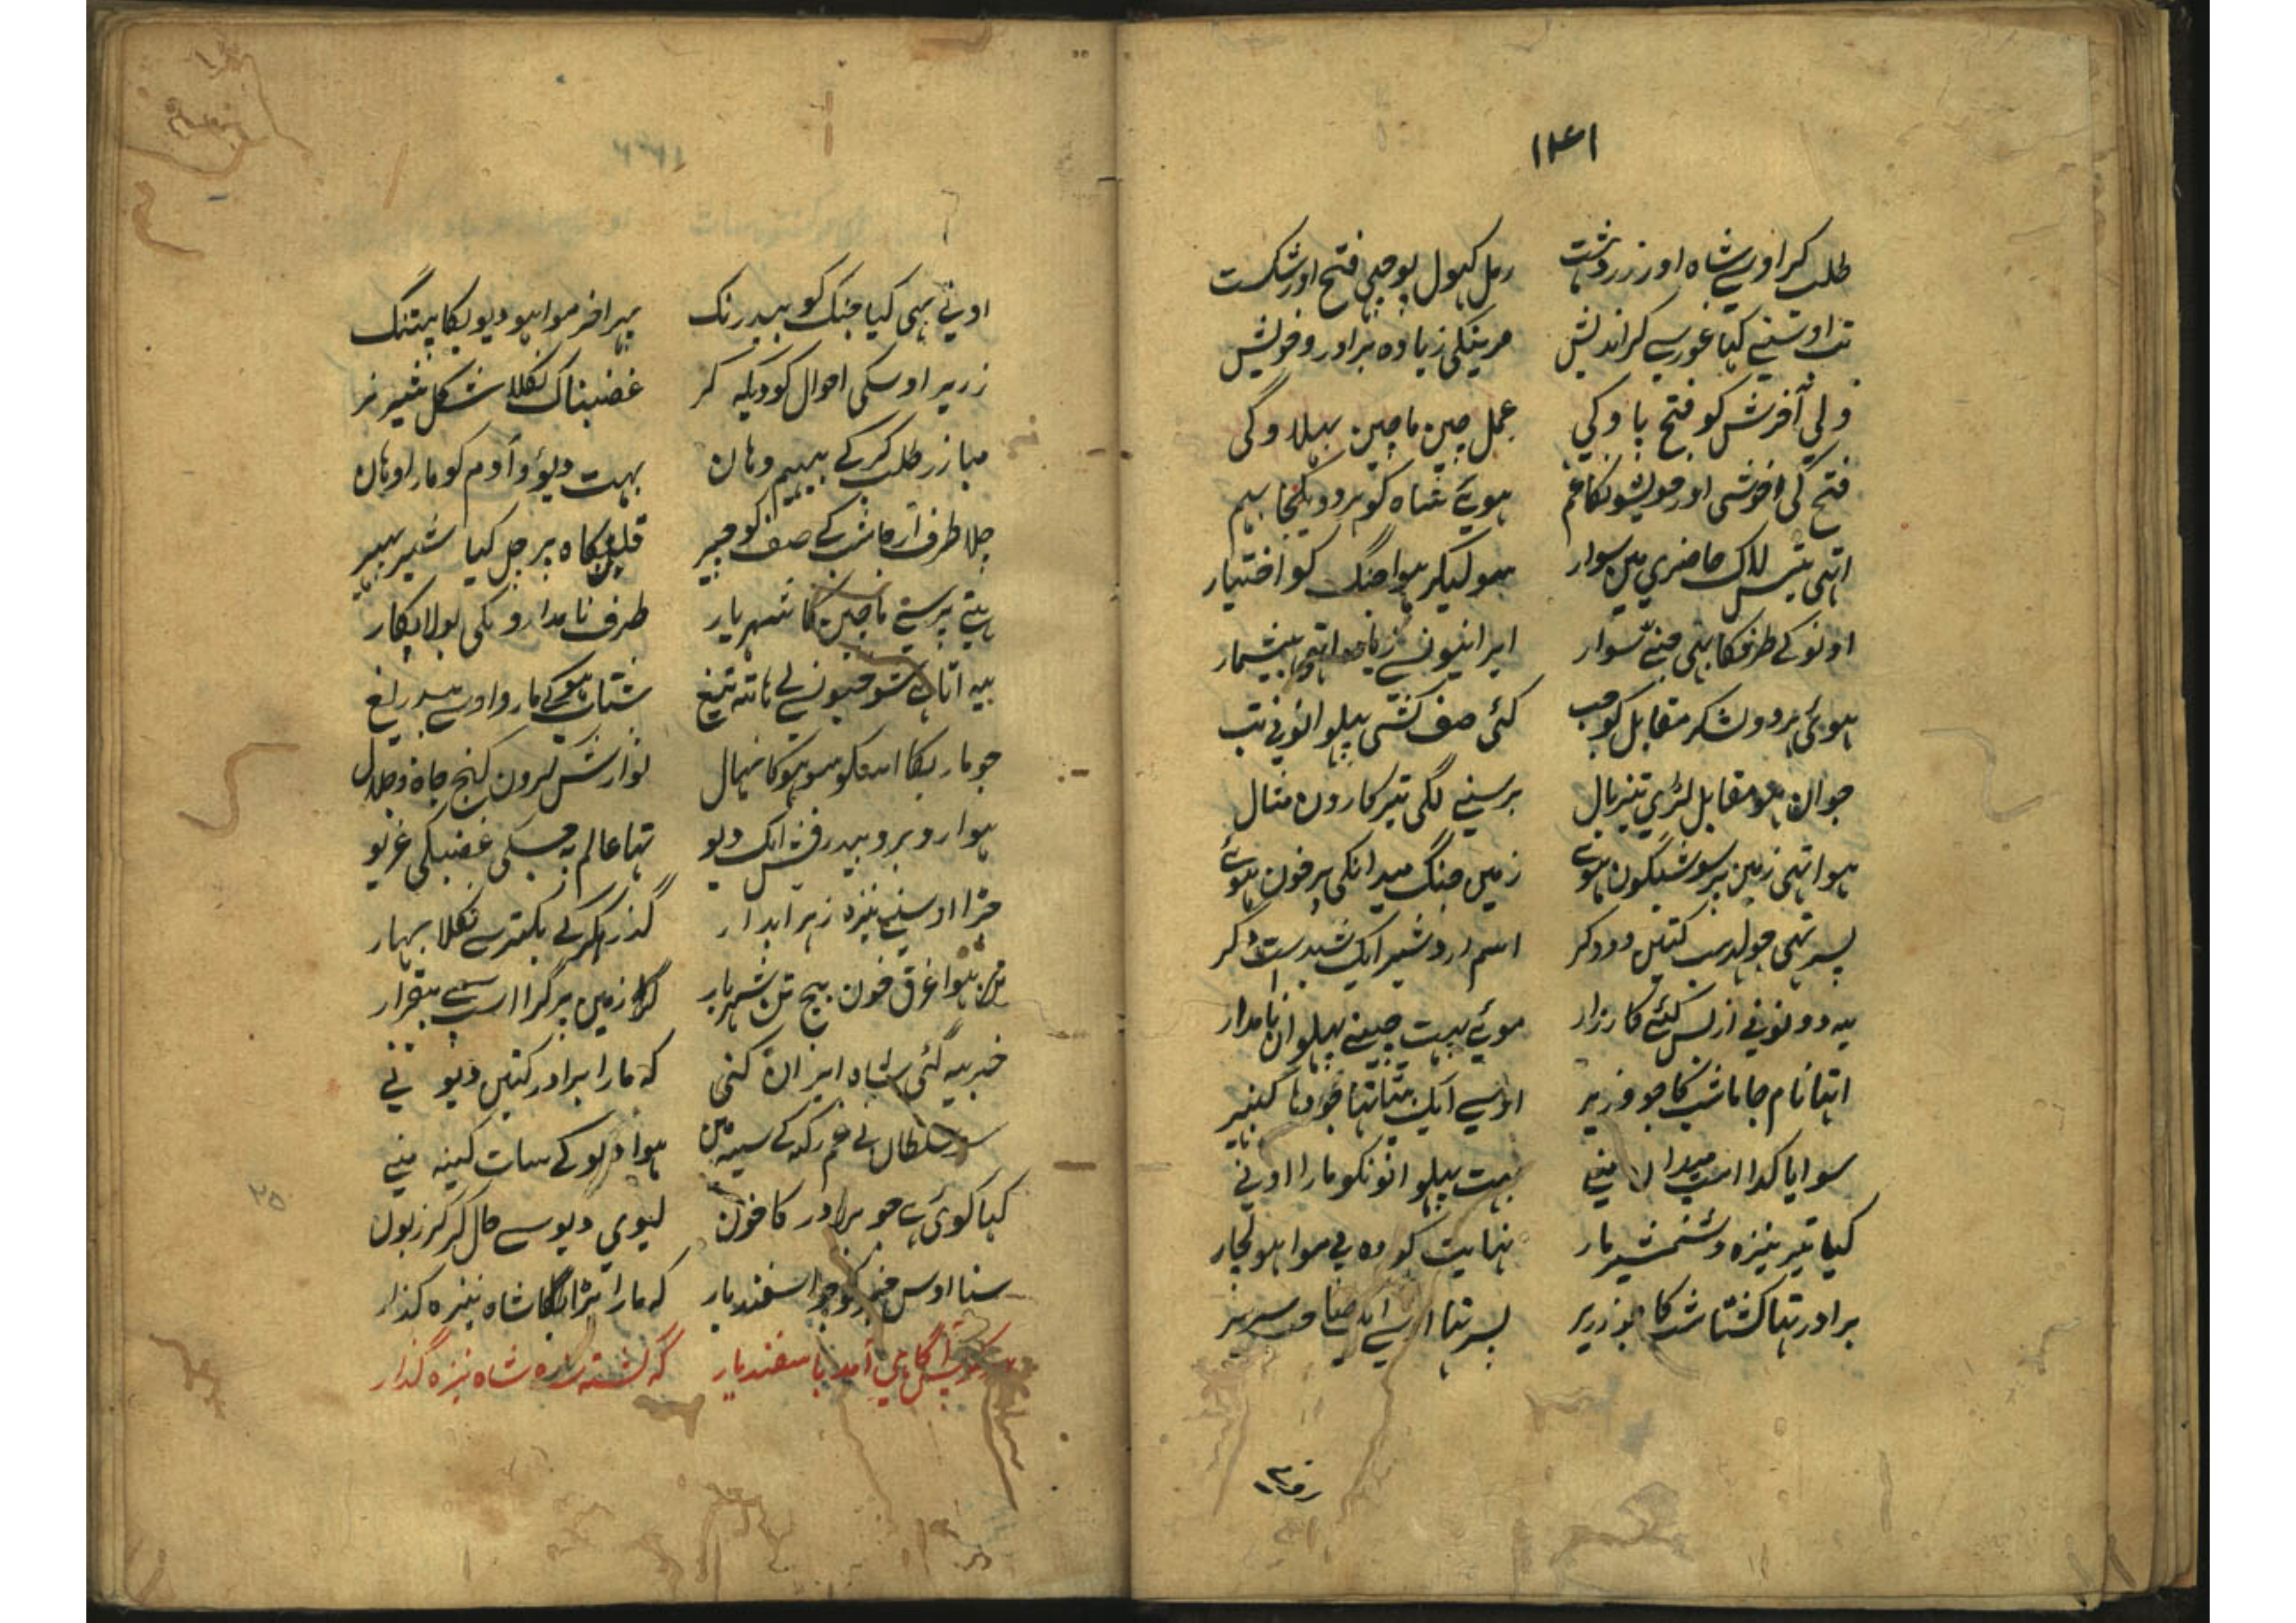 ۱۴۱
طلب کر اوسے شاہ اور زردشت رمل کہول پوچہی فتح اور شکست
تب اوسنے کہا غور سے کر اندیش مرینگی زیادہ برادر و خویش
ولی آخرش کو فتح پاوگی عمل چین ماچین بہلاوگی
فتح کی خوشی اور خویشونکا غم ہوئے شاہ کو ہر دو یکجا بہم
اتہی تیس لاک حاضری مین سوار ہو لیکر ہوا جنگ کو اختیار
اونو کے طرف کا بہی منے سوار ایرانیو نسے زیادہ اتہی بیشمار
ہوئی ہر دو لشکر مقابل کو جب کئی صف کشی پہلوانونے تب
جوان ہو مقابل لڑی تیر بال برسنے لگی تیر کارون مثال
ہوا تہی زمین پر سو شبگون ہوئے زمین جنگ میدانکی پر خون ہوئے
پسر تہی جو لہراسب کتین دو دگر اسم اردشیر ایک شیدسب دگر
یہ دونونے ازبس کئے کارزار موئے بہت چینے پہلوان نامدار
اتہا نام جاماشب کا جو وزیر اوسے ایک بیٹا تہا خورد ناگزیر
سو ایا کدا اسپ میدان منے بہت پہلوانونکو مارا اونے
کیا تیر نیزہ و شمشیر مار نہایت کو وہ بی موا ہو لچار
برادر تہا کشتاشب کا جو زریر پسر تہا اسے ایک صاحب سریر
زریر
اونے بہی کیا جنگ کو بیدرنگ پہر اخر موا ہو دیویکا بتنگ
زریر اوسکی احوال کو دیکہ کر غضبناک نکلا شکل شیر نر
مبازر طلب کرکے بہیم وہان بہت دیؤ و آدم کو مارا وہان
چلا طرف ارجاشب کے صف کو چیر قلب گاہ پر چل کیا شیر ببر
ہتے پرستے ماچین کا شہریار طرف نامدارونکی بولا پکار
یہ اتا ہے سو چپونے لے ہاتہ تیغ شتاب ہوکے مارو اوسے بیدریغ
جو ماریگا اسکو سو ہوگا نہال نوازش کرون گنج جاہ و جلال
ہوا روبرو بیدرفش ایک دیو تہا عالم پہ جسکی غضبکی غریو
جڑا اوسنے نیزہ زہر ابدار گذر کرکے بکتر سے نکلا بہار
ہوا غرق خون بیچ تن شہریار گرا زمین پر گرا اسپ سے بیقرار
خبر یہ گئی شاہ ایران کنی کہ مارا برادر کتین دیو نے
سو سلطان نے غم رکہ کے سینہ مین ہوا دیو کے سات کینہ منے
کہا کوئی ہے جو برادر کا خون لیوی دیو سے حال کر کر زبون
سنا اوس خبر کو جو اسفندیار کہ مارا پڑا ہیگا شاہ نیزہ گذار
پس آگاہی آمد باسفندیار کہ کشتہ شدہ شاہ نیزہ گذار
۲۵